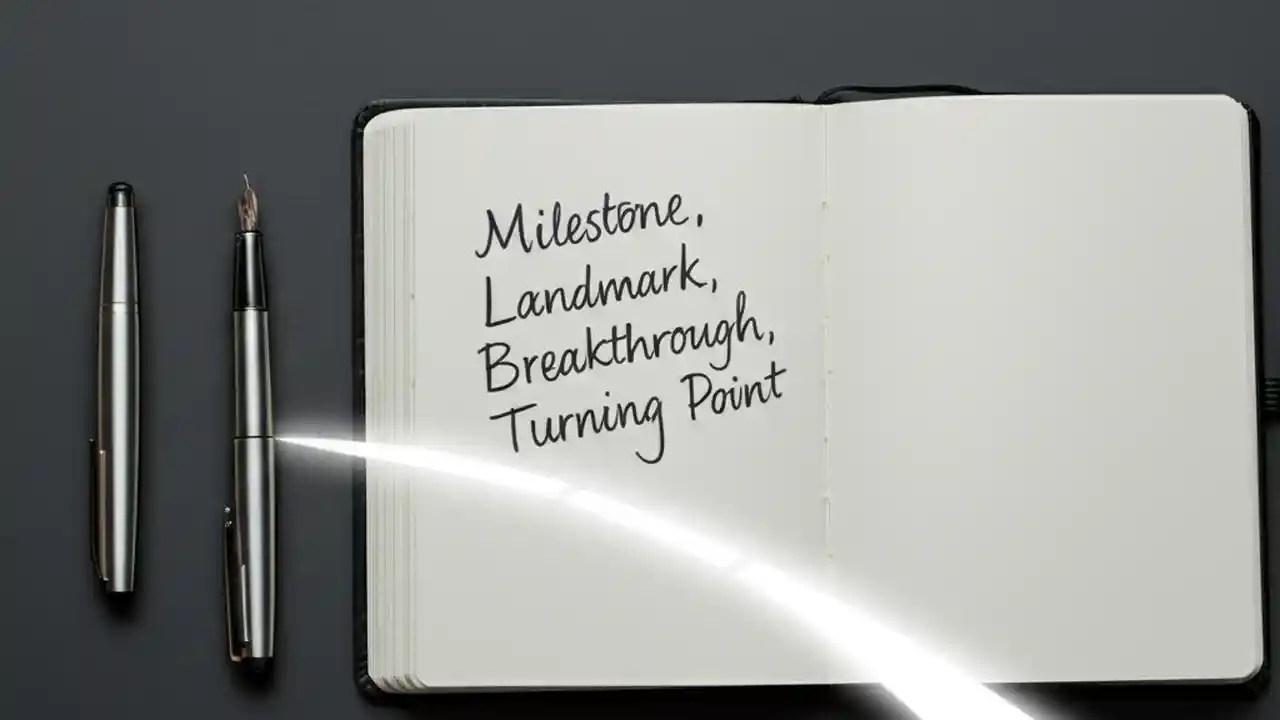 Milestone,
Landmark,
Breakthrough,
Turning Point